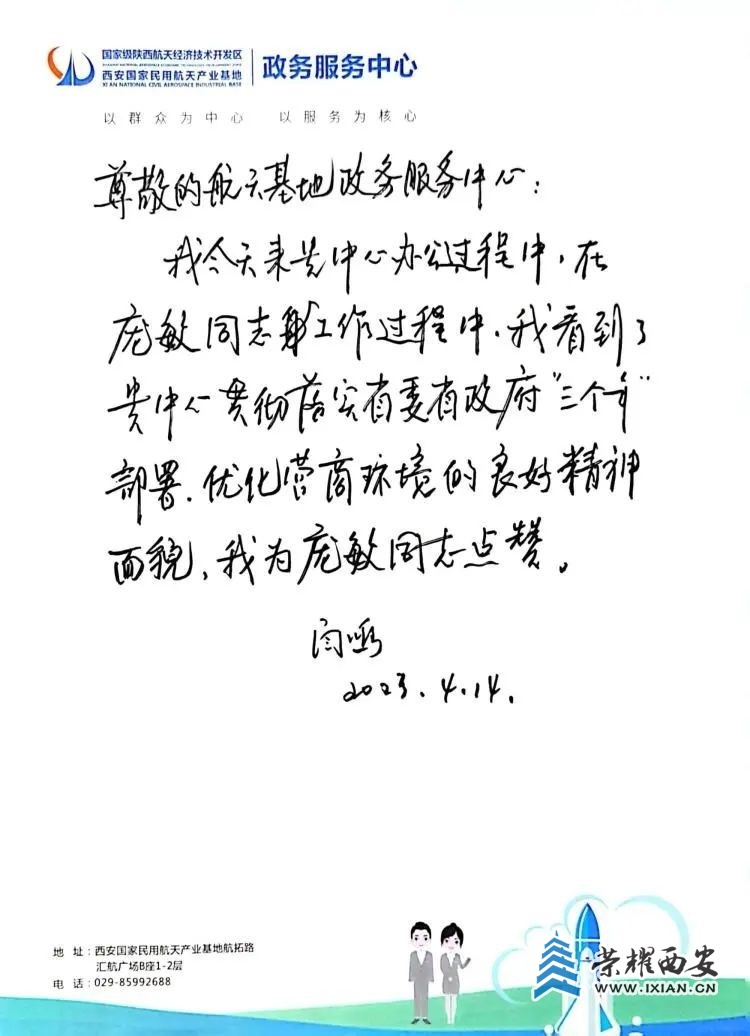 国家级陕西航天经济技术开发区
西安国家民用航天产业基地
XI AN NATIONAL CIVIL AEROSPACE INDUSTRIAL BASE
政务服务中心
以群众为中心 以服务为核心
尊敬的航天基地政务服务中心:
我今天来贵中心办公过程中,在
庞敏同志工作过程中,我看到了
贵中心贯彻落实省委省政府"三个年"
部署、优化营商环境的良好精神
面貌,我为庞敏同志点赞。
闫
2023.4.14.
地 址:西安国家民用航天产业基地航拓路
汇航广场B座1-2层
电 话:029-85992688
荣耀西安
WWW.IXIAN.CN